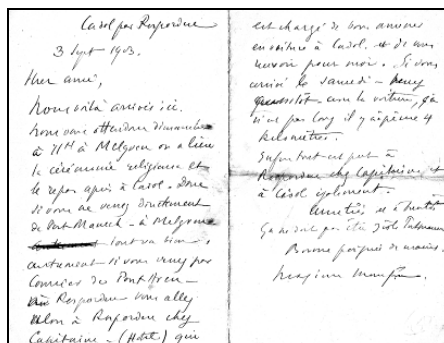 Cadol par Rosporden
3 Sept 1903.
Cher ami,
Nous voilà arrivés ici.
Nous vous attendons dimanche
à 11H à Melgven où a lieu
la cérémonie religieuse et
le repas après à Cadol. Donc
si vous ne venez directement
de Port Manech - à Melgven
tout va bien
autrement si vous venez par
Courrier de Pont Aven
Rosporden vous allez
alors à Rosporden chez
Capitaine - (Hôtel) qui
est chargé de vous amener
en voiture à Cadol. et de vous
pour moi. Si vous
arrivé le samedi -
avec la voiture, ça
n'est pas long il y a à peine 4
kilomètres.
Enfin tout est prêt à
Rosporden chez Capitaine, et
à Cadol également.
Amitiés et à bientôt
Ça ne doit pas être
Bonne poignée de mains.
Maxime Maufra.